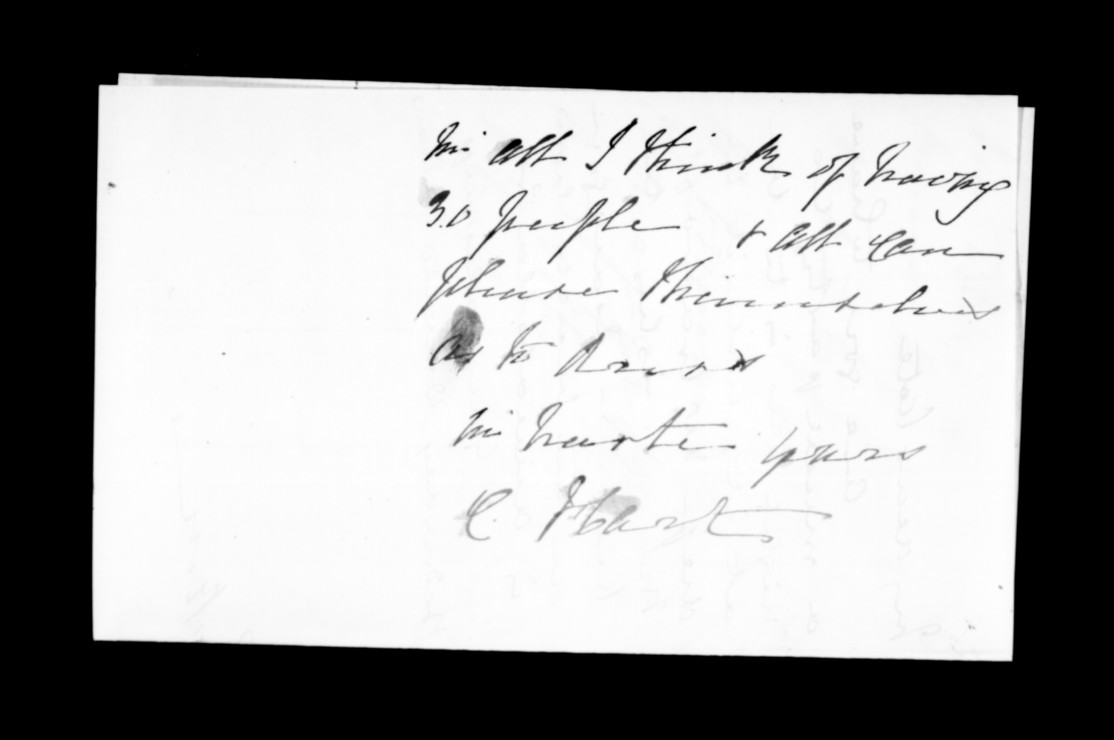 in all I think of having
30 people & all can
please themselves
as to dress
in haste yours
C. Hart